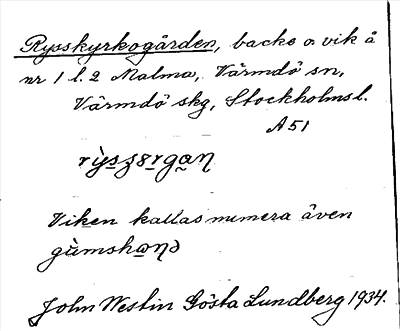 Rysskyrkogården, backe o. vik å
nr 1 l. 2 Malma, Värmdö sn,
Värmdö skg, Stockholms l.
A 51
Viken kallas numera även
John Westin Gösta Lundberg 1934.